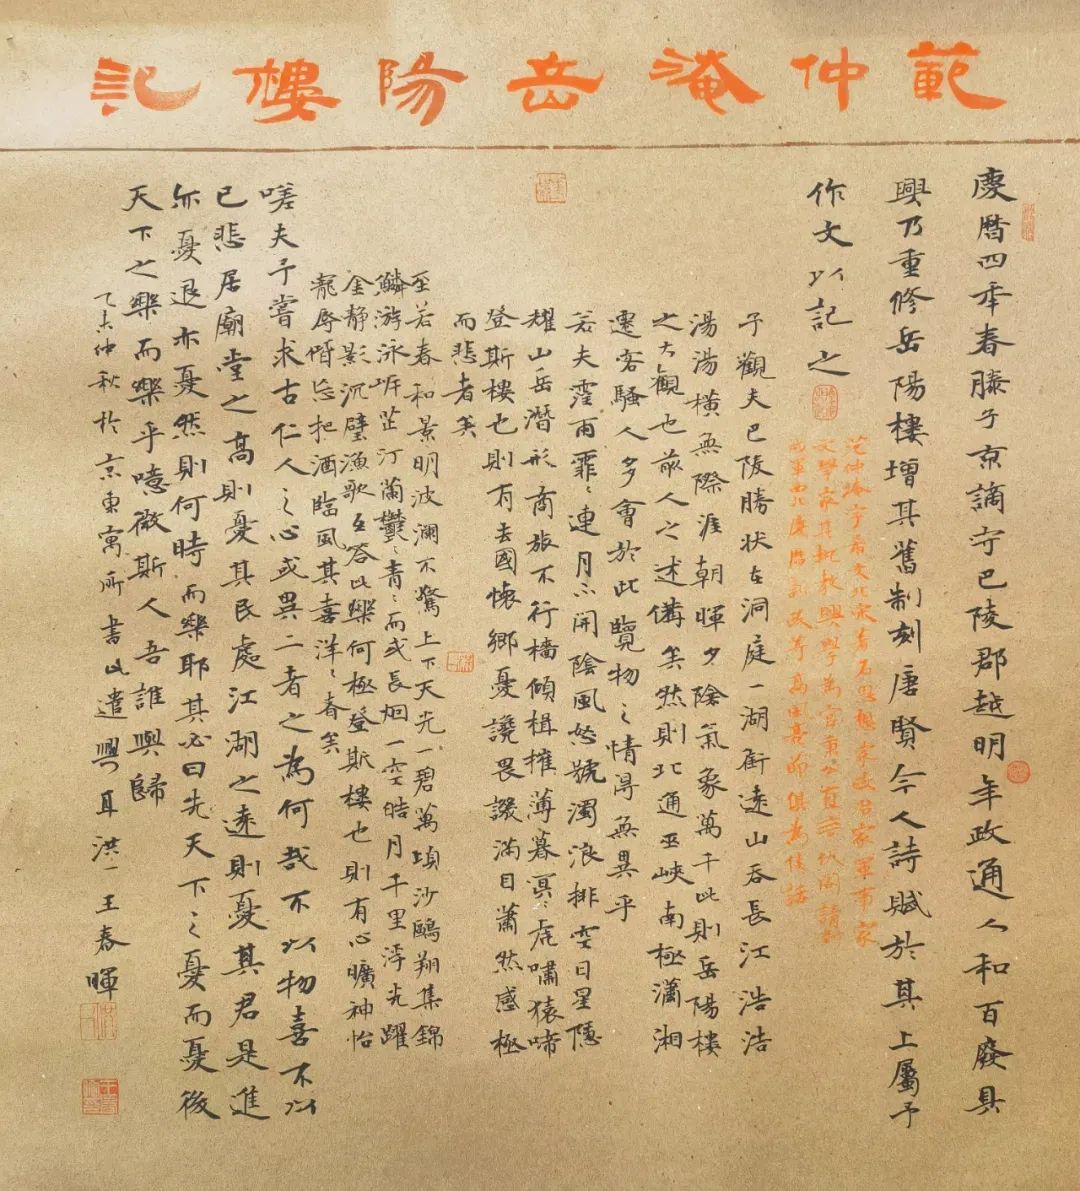 範仲淹岳陽樓記
慶曆四年春滕子京謫守巴陵郡越明年政通人和百廢具
興乃重修岳陽樓增其舊制刻唐賢今人詩賦於其上屬予
作文以記之
范仲淹字希文北宋著名思想家政治家軍事家
文學家其執教興學為官秉公直言
慶曆新政等高風亮節俱為佳話
予觀夫巴陵勝狀在洞庭一湖銜遠山吞長江浩浩
湯湯橫無際涯朝暉夕陰氣象萬千此則岳陽樓
之大觀也前人之述備矣然則北通巫峽南極瀟湘
遷客騷人多會於此覽物之情得無異乎
若夫霪雨霏〻連月不開陰風怒號濁浪排空日星隱
耀山岳潛形商旅不行檣傾楫摧薄暮冥〻虎嘯猿啼
登斯樓也則有去國懷鄉憂讒畏譏滿目蕭然感極
而悲者矣
至若春和景明波瀾不驚上下天光一碧萬頃沙鷗翔集錦
鱗游泳岸芷汀蘭鬱〻青〻而或長烟一空皓月千里浮光躍
金静影沉璧漁歌互答此樂何極登斯樓也則有心曠神怡
寵辱偕忘把酒臨風其喜洋〻者矣
嗟夫予嘗求古仁人之心或異二者之為何哉不以物喜不以
己悲居廟堂之高則憂其民處江湖之遠則憂其君是進
亦憂退亦憂然則何時而樂耶其必曰先天下之憂而憂後
天下之樂而樂乎噫微斯人吾誰與歸
乙未仲秋於京東寓所書此遣興耳洪一王春暉